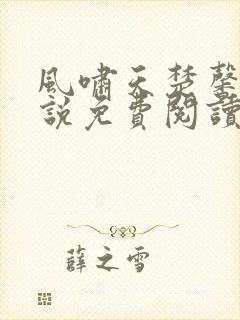 風嘯天楚馨
說免費閱讀
薛之雪